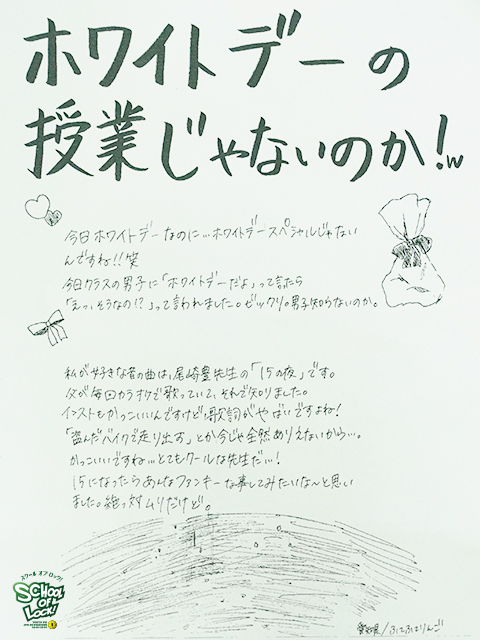 ホワイトデーの
授業じゃないのか!w
今日ホワイトデーなのに…ホワイトデースペシャルじゃない
んですね!!笑
今日クラスの男子に「ホワイトデーだよ」って言ったら
「えっ、そうなの!?」って言われました。ビックリ。男子知らないのか。
私が好きな昔の曲は、尾崎豊先生の「15の夜」です。
父が毎回カラオケで歌っていて、それで知りました。
イントロもかっこいいんですけど歌詞がやばいですよね!
「盗んだバイクで走り出す」とか今じゃ全然ありえないから…。
かっこいいですね…とてもクールな先生だ…!
15になったらあんなファンキーな事してみたいな〜と思い
ました。絶っ対ムリだけど。
スクール オブ ロック!
SCHOOL
OF
LOCK!
愛知県/ふてふてりんご